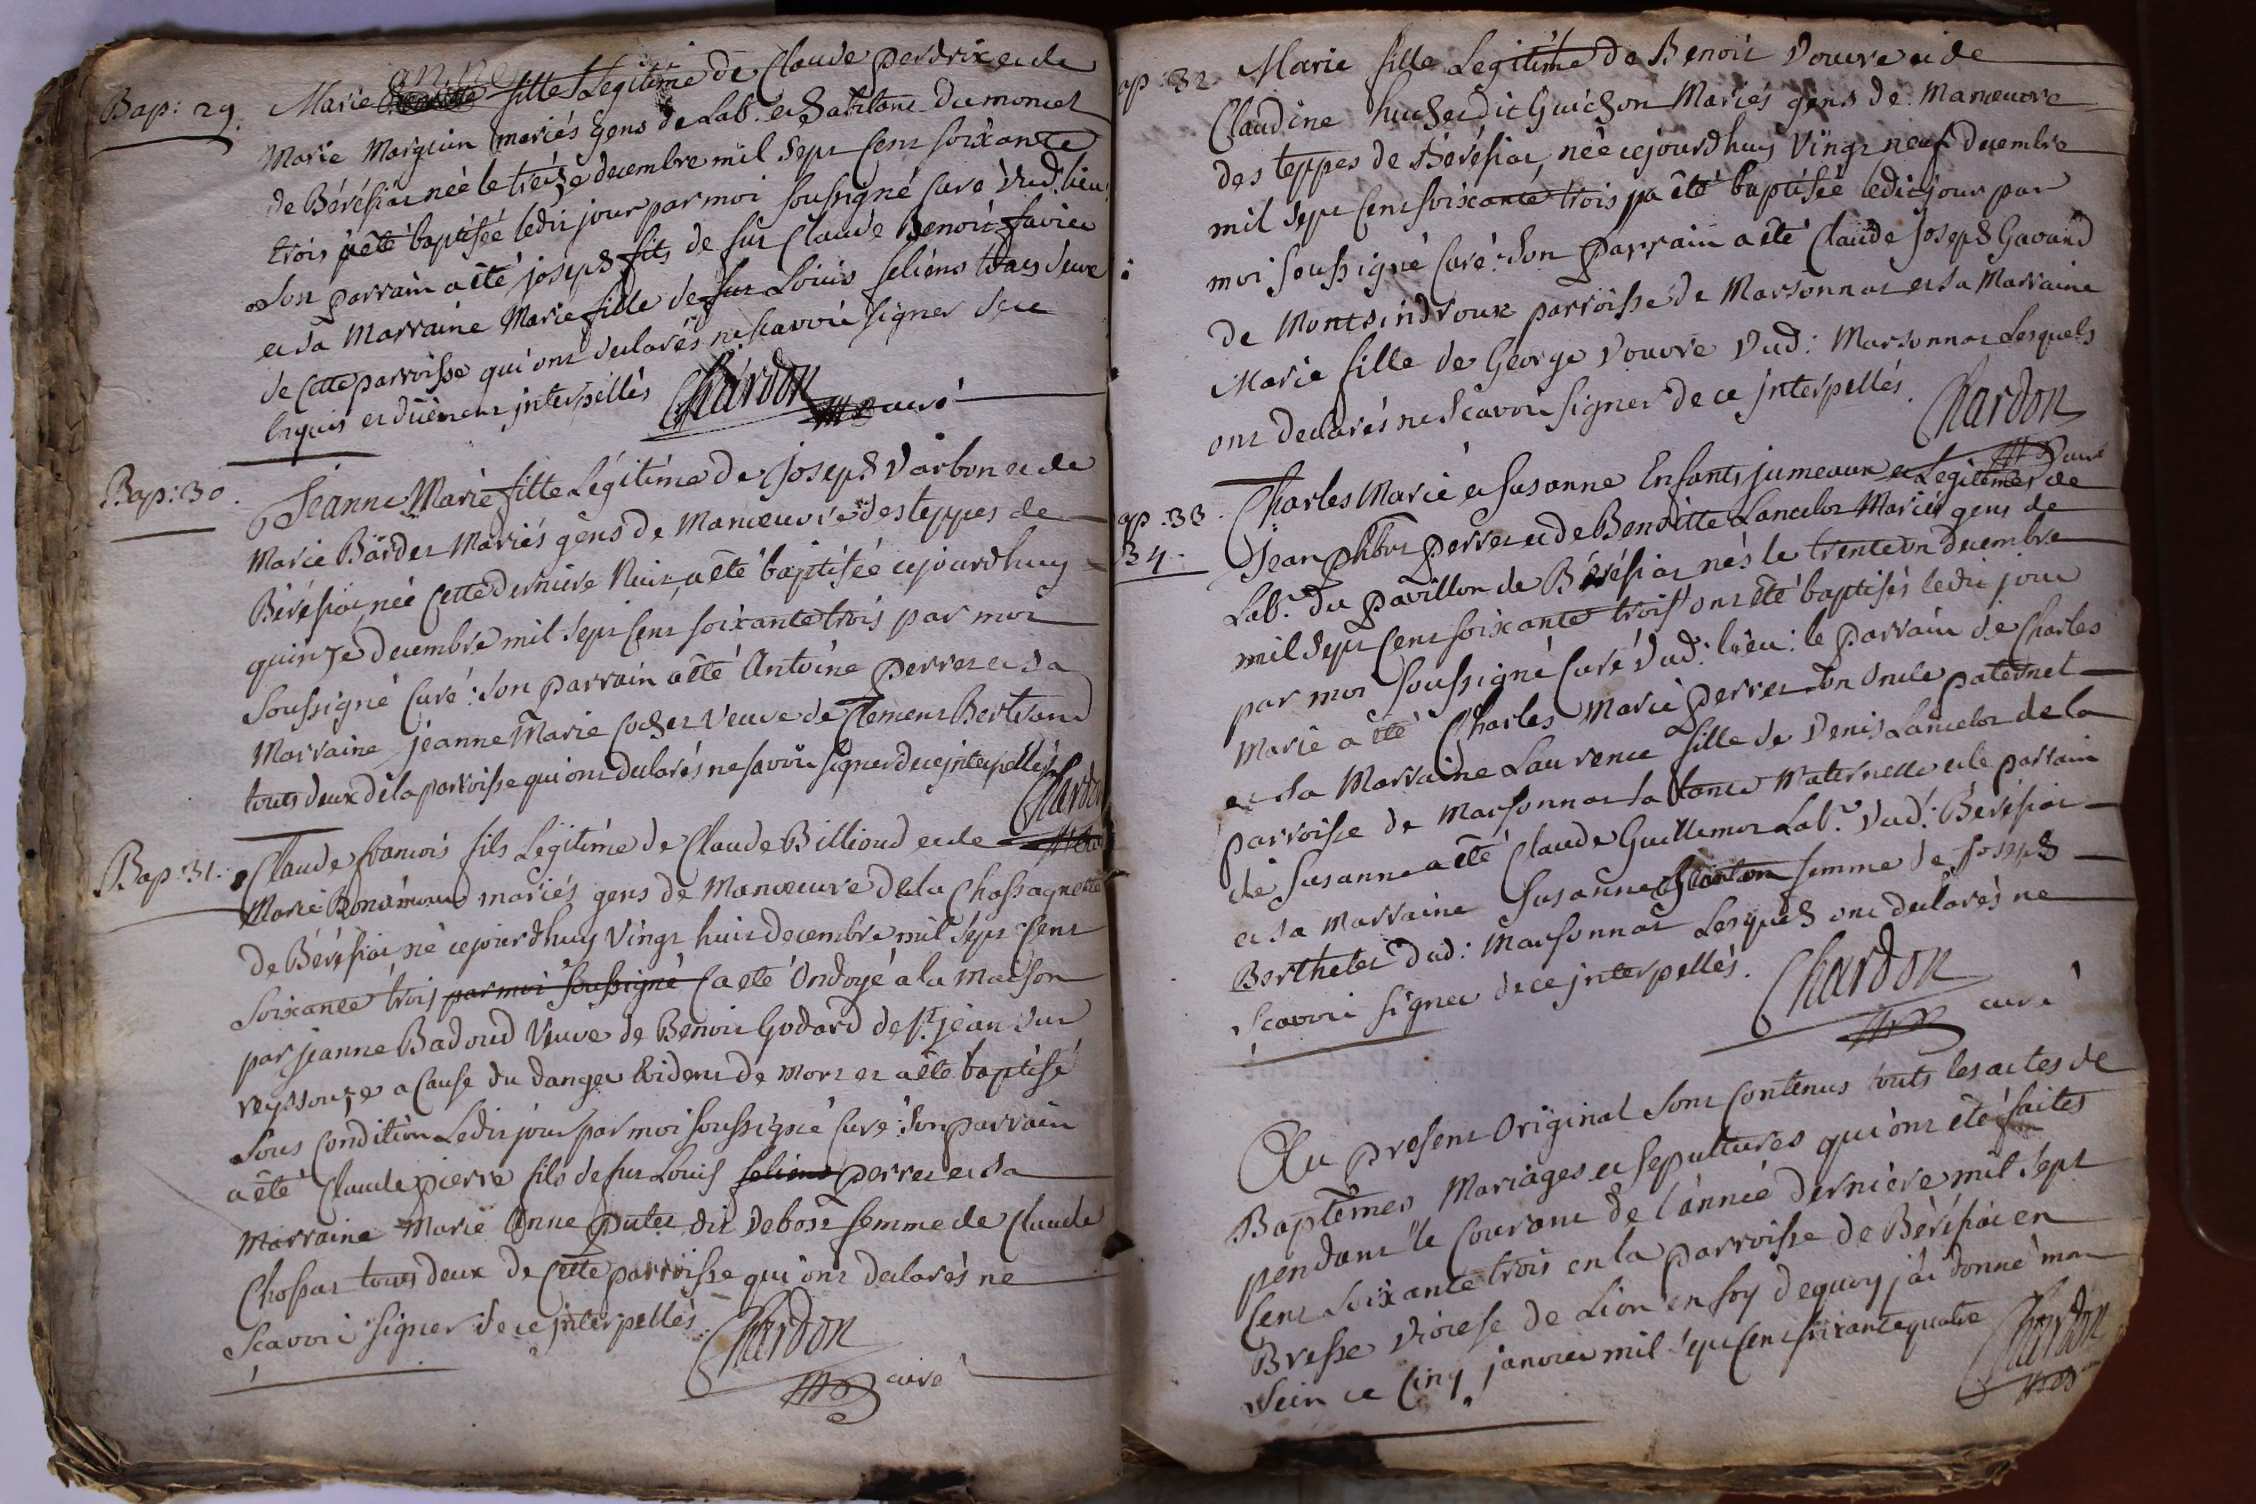 Bap: 29. Marie fille Legitime de Claude perdrix et de
Marie Marguin mariés gens de Lab. et habitans du moncel
de Béréziat née le treize decembre mil sept cent soixante
trois a été baptisée ledit jour par moi soussigné Curé dud. lieu:
son parrain a été joseph fils de fut Claude Benoit
et sa Marraine Marie fille de fut Louis feliens touts deux
de Cette parroisse qui ont declarés ne scavoir signer de ce
Enquis et düement jnterpellés Chardon curé
Bap: 30. Jeanne Marie fille Légitime de joseph Varbon et de
Marie Bardet Mariés gens de Manoeuvre des teppes de
Béréziat, née Cette derniere Nuit, a été baptisée cejourdhuy
quinze decembre mil sept cent soixante trois par moi
Soussigné Curé: son parrain a été Antoine perret et sa
Marraine jeanne Marie Cochet veuve de Clement Bertrand
touts deux de la parroisse qui ont declarés ne savoir signer de ce jnterpellés
Chardon
Bap: 31. Claude francois fils Legitime de Claude Billioud et de
Marie mariés gens de Manoeuvre de la Chassagnette
de Béréziat né cejourdhuy Vingt huit decembre mil sept Cent
soixante trois par moi soussigné a été Ondoyé a la maison
par jeanne Badoud Veuve de Benoit Godard de St. jean sur
reyssouze a Cause du danger Evident de mort et a été baptisé
Sous Condition Ledit jour par moi soussigné Curé: son parrain
a été Claude pierre fils de fut Louis feliens perret et sa
Marraine Marie Anne putet dit Debost femme de Claude
Chossat touts deux de Cette parroisse qui ont declarés ne
Scavoir signer de ce jnterpellés. Chardon
curé
ap: 32. Marie fille Legitime de Benoit Vouvre et de
Claudine huchet dit Guichon Mariés gens de Manoeuvre
des teppes de Béréziat, née cejourdhuy Vingt neuf decembre
mil sept Cent soixante trois, a été baptisée ledit jour par
moi Soussigné Curé: son parrain a été Claude joseph Gavand
de Montsindroux parroisse de Marsonnas et sa Marraine
Marie fille de George Vouvre dud: Marsonnas Lesquels
ont declarés ne Scavoir signer de ce jnterpellés. Chardon
curé
ap: 33. Charles Marie et Susanne Enfants jumeaux et Legitimes de
34. Jean phbert perret et de Benoitte Lancelot Mariés gens de
Lab. du pavillon de Béréziat nés le trente un decembre
mil sept Cent soixante trois, ont été baptisés ledit jour
par moi soussigné Curé dud: lieu: le parrain de Charles
Marie a été Charles Marie perret son Oncle paternel
et sa Marraine Laurence fille de Denis Lancelot de la
parroisse de Marsonnas sa tante Maternelle et le parrain
de Susanne a été Claude Guillemot Lab. dud: Béréziat
et sa Marraine Susanne femme de Joseph
Berthelet dud: Marsonnas Lesquels ont declarés ne
Scavoir signer de ce jnterpellés. Chardon
curé
Au present Original sont Contenus touts les actes de
Baptêmes Mariages et sepultures qui ont été faites
pendant le Courant de l'année derniere mil sept
Cent soixante trois en la parroisse de Béréziat en
Bresse Diocese de Lion en foy de quoy j'ai donné mon
Sein ce Cinq janvier mil sept Cent soixante quatre Chardon